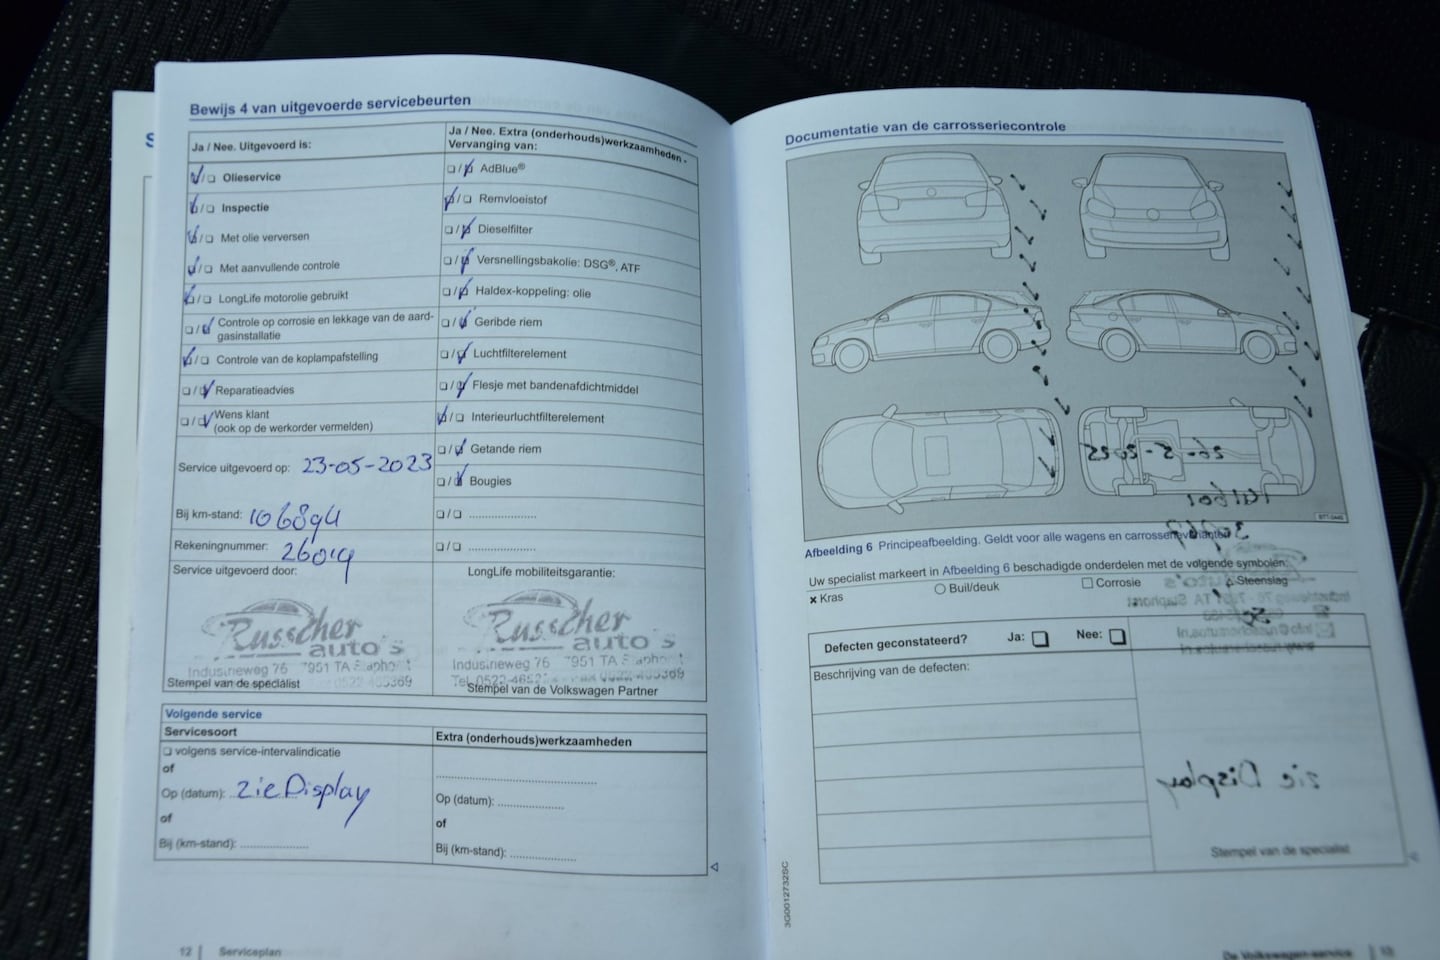 Bewijs 4 van uitgevoerde servicebeurten
Ja / Nee. Uitgevoerd is:
Olieservice
Inspectie
Met olie verversen
Met aanvullende controle
LongLife motorolie gebruikt
Controle op corrosie en lekkage van de aard-
gasinstallatie
Controle van de koplampafstelling
Reparatieadvies
Wens klant
(ook op de werkorder vermelden)
Service uitgevoerd op: 23-05-2023
Bij km-stand: 106894
Rekeningnummer: 26019
Service uitgevoerd door:
Russcher
auto's
Industrieweg 76 7951 TA Staphorst
Stempel van de specialist
Ja / Nee. Extra (onderhouds)werkzaamheden -
Vervanging van:
AdBlue®
Remvloeistof
Dieselfilter
Versnellingsbakolie: DSG®, ATF
Haldex-koppeling: olie
Geribde riem
Luchtfilterelement
Flesje met bandenafdichtmiddel
Interieurluchtfilterelement
Getande riem
Bougies
LongLife mobiliteitsgarantie:
Russcher
auto's
Industrieweg 76 7951 TA Staphorst
Stempel van de Volkswagen Partner
Volgende service
Servicesoort
volgens service-intervalindicatie
of
Op (datum): zie Display
of
Bij (km-stand):
Extra (onderhouds)werkzaamheden
Op (datum):
of
Bij (km-stand):
12 Serviceplan
Documentatie van de carrosseriecontrole
Afbeelding 6 Principeafbeelding. Geldt voor alle wagens en carrosserievarianten
Uw specialist markeert in Afbeelding 6 beschadigde onderdelen met de volgende symbolen:
x Kras Buil/deuk Corrosie Steenslag
Defecten geconstateerd? Ja: Nee:
Beschrijving van de defecten:
Stempel van de specialist
3G0012732SC
De Volkswagen-service 13